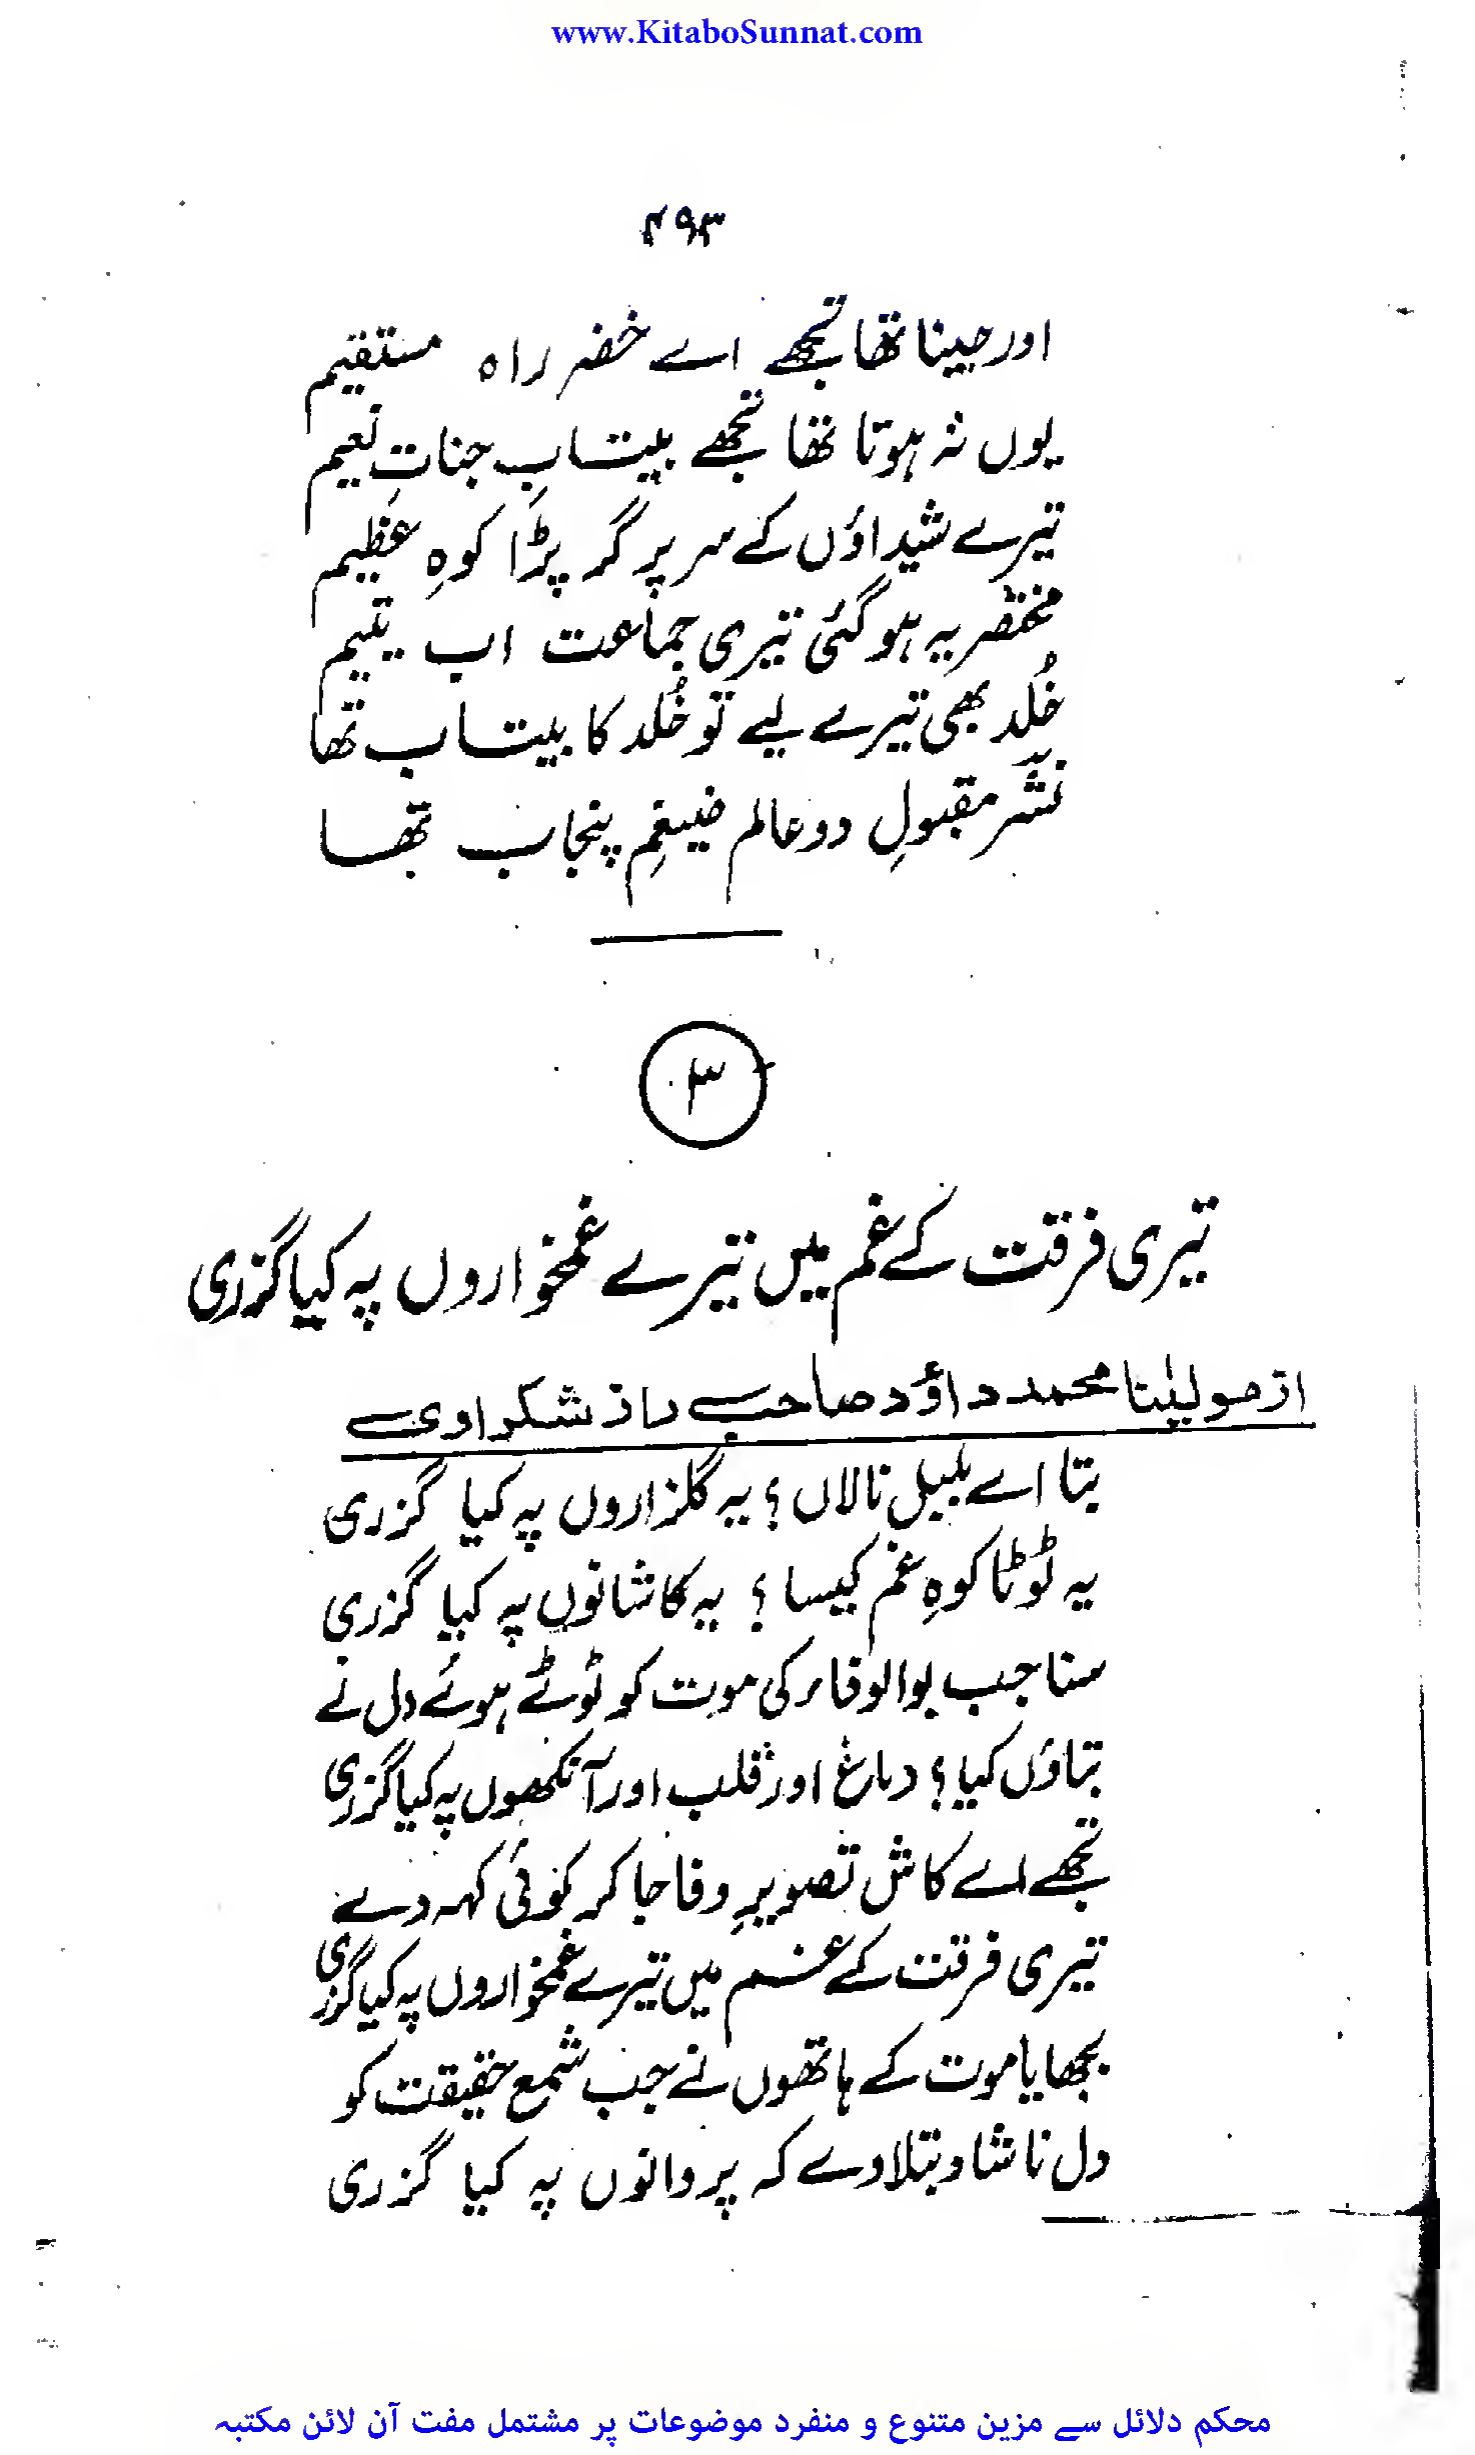 www.KitaboSunnat.com
۴۹۳
اور جینا تھا تجھے اے خضر راہ مستقیم
یوں نہ ہوتا تھا تجھے بیتاب جنات نعیم
تیرے شیداؤں کے سر پر گر پڑا کوہِ عظیم
مختصر یہ ہوگئی تیری جماعت اب یتیم
خُلد بھی تیرے لیے تو خُلد کا بیتاب تھا
نشر مقبولِ دو عالم ضیغمِ پنجاب تھا
۳
تیری فرقت کے غم میں تیرے غمخواروں پہ کیا گزری
از مولیٰنا محمد داؤد صاحب راز شکراوی
بتا اے بلبل نالاں؟ یہ گلزاروں پہ کیا گزری
یہ ٹوٹا کوہِ غم کیسا؟ یہ کاشانوں پہ کیا گزری
سنا جب بوالوفاء کی موت کو ٹوٹے ہوئے دل نے
بتاؤں کیا؟ دماغ اور قلب اور آنکھوں پہ کیا گزری
تجھے اے کاش تصویرِ وفا جا کر کوئی کہہ دے
تیری فرقت کے غم میں تیرے غمخواروں پہ کیا گزری
بجھایا موت کے ہاتھوں نے جب شمع حقیقت کو
دل ناشاد بتلا دے کہ پروانوں پہ کیا گزری
محکم دلائل سے مزین متنوع و منفرد موضوعات پر مشتمل مفت آن لائن مکتبہ